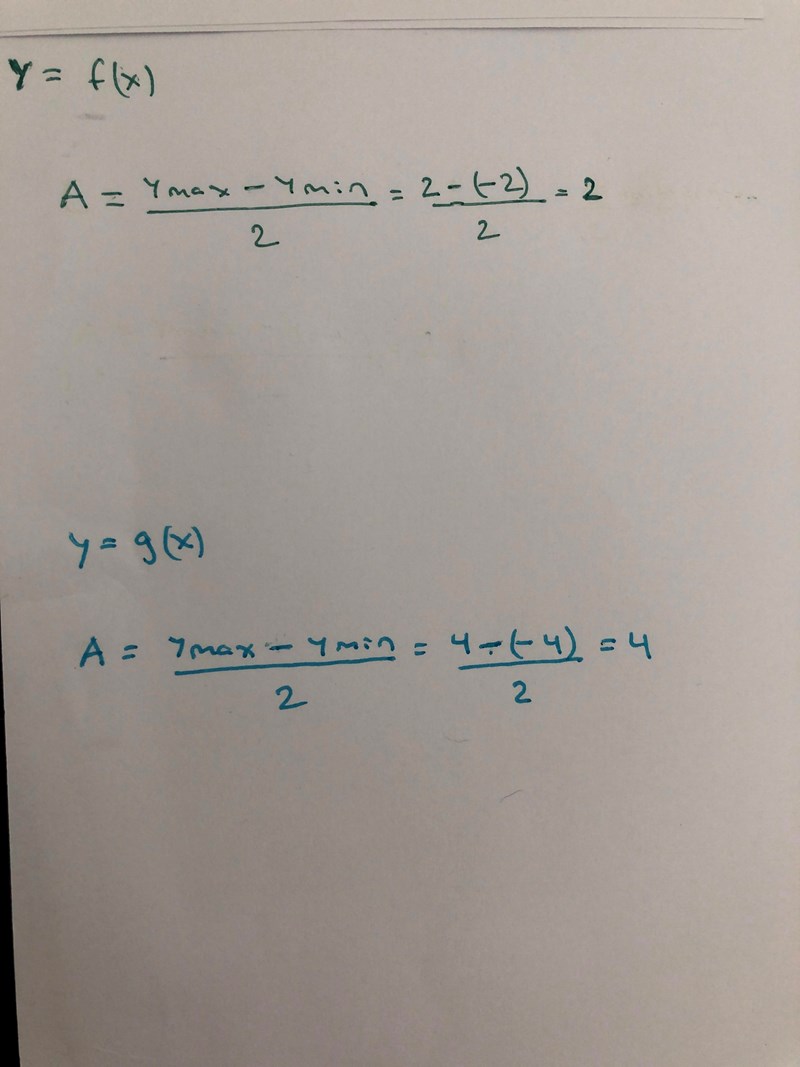 y = f(x)
A = (y max - y min) / 2 = (2 - (-2)) / 2 = 2
y = g(x)
A = (y max - y min) / 2 = (4 - (-4)) / 2 = 4